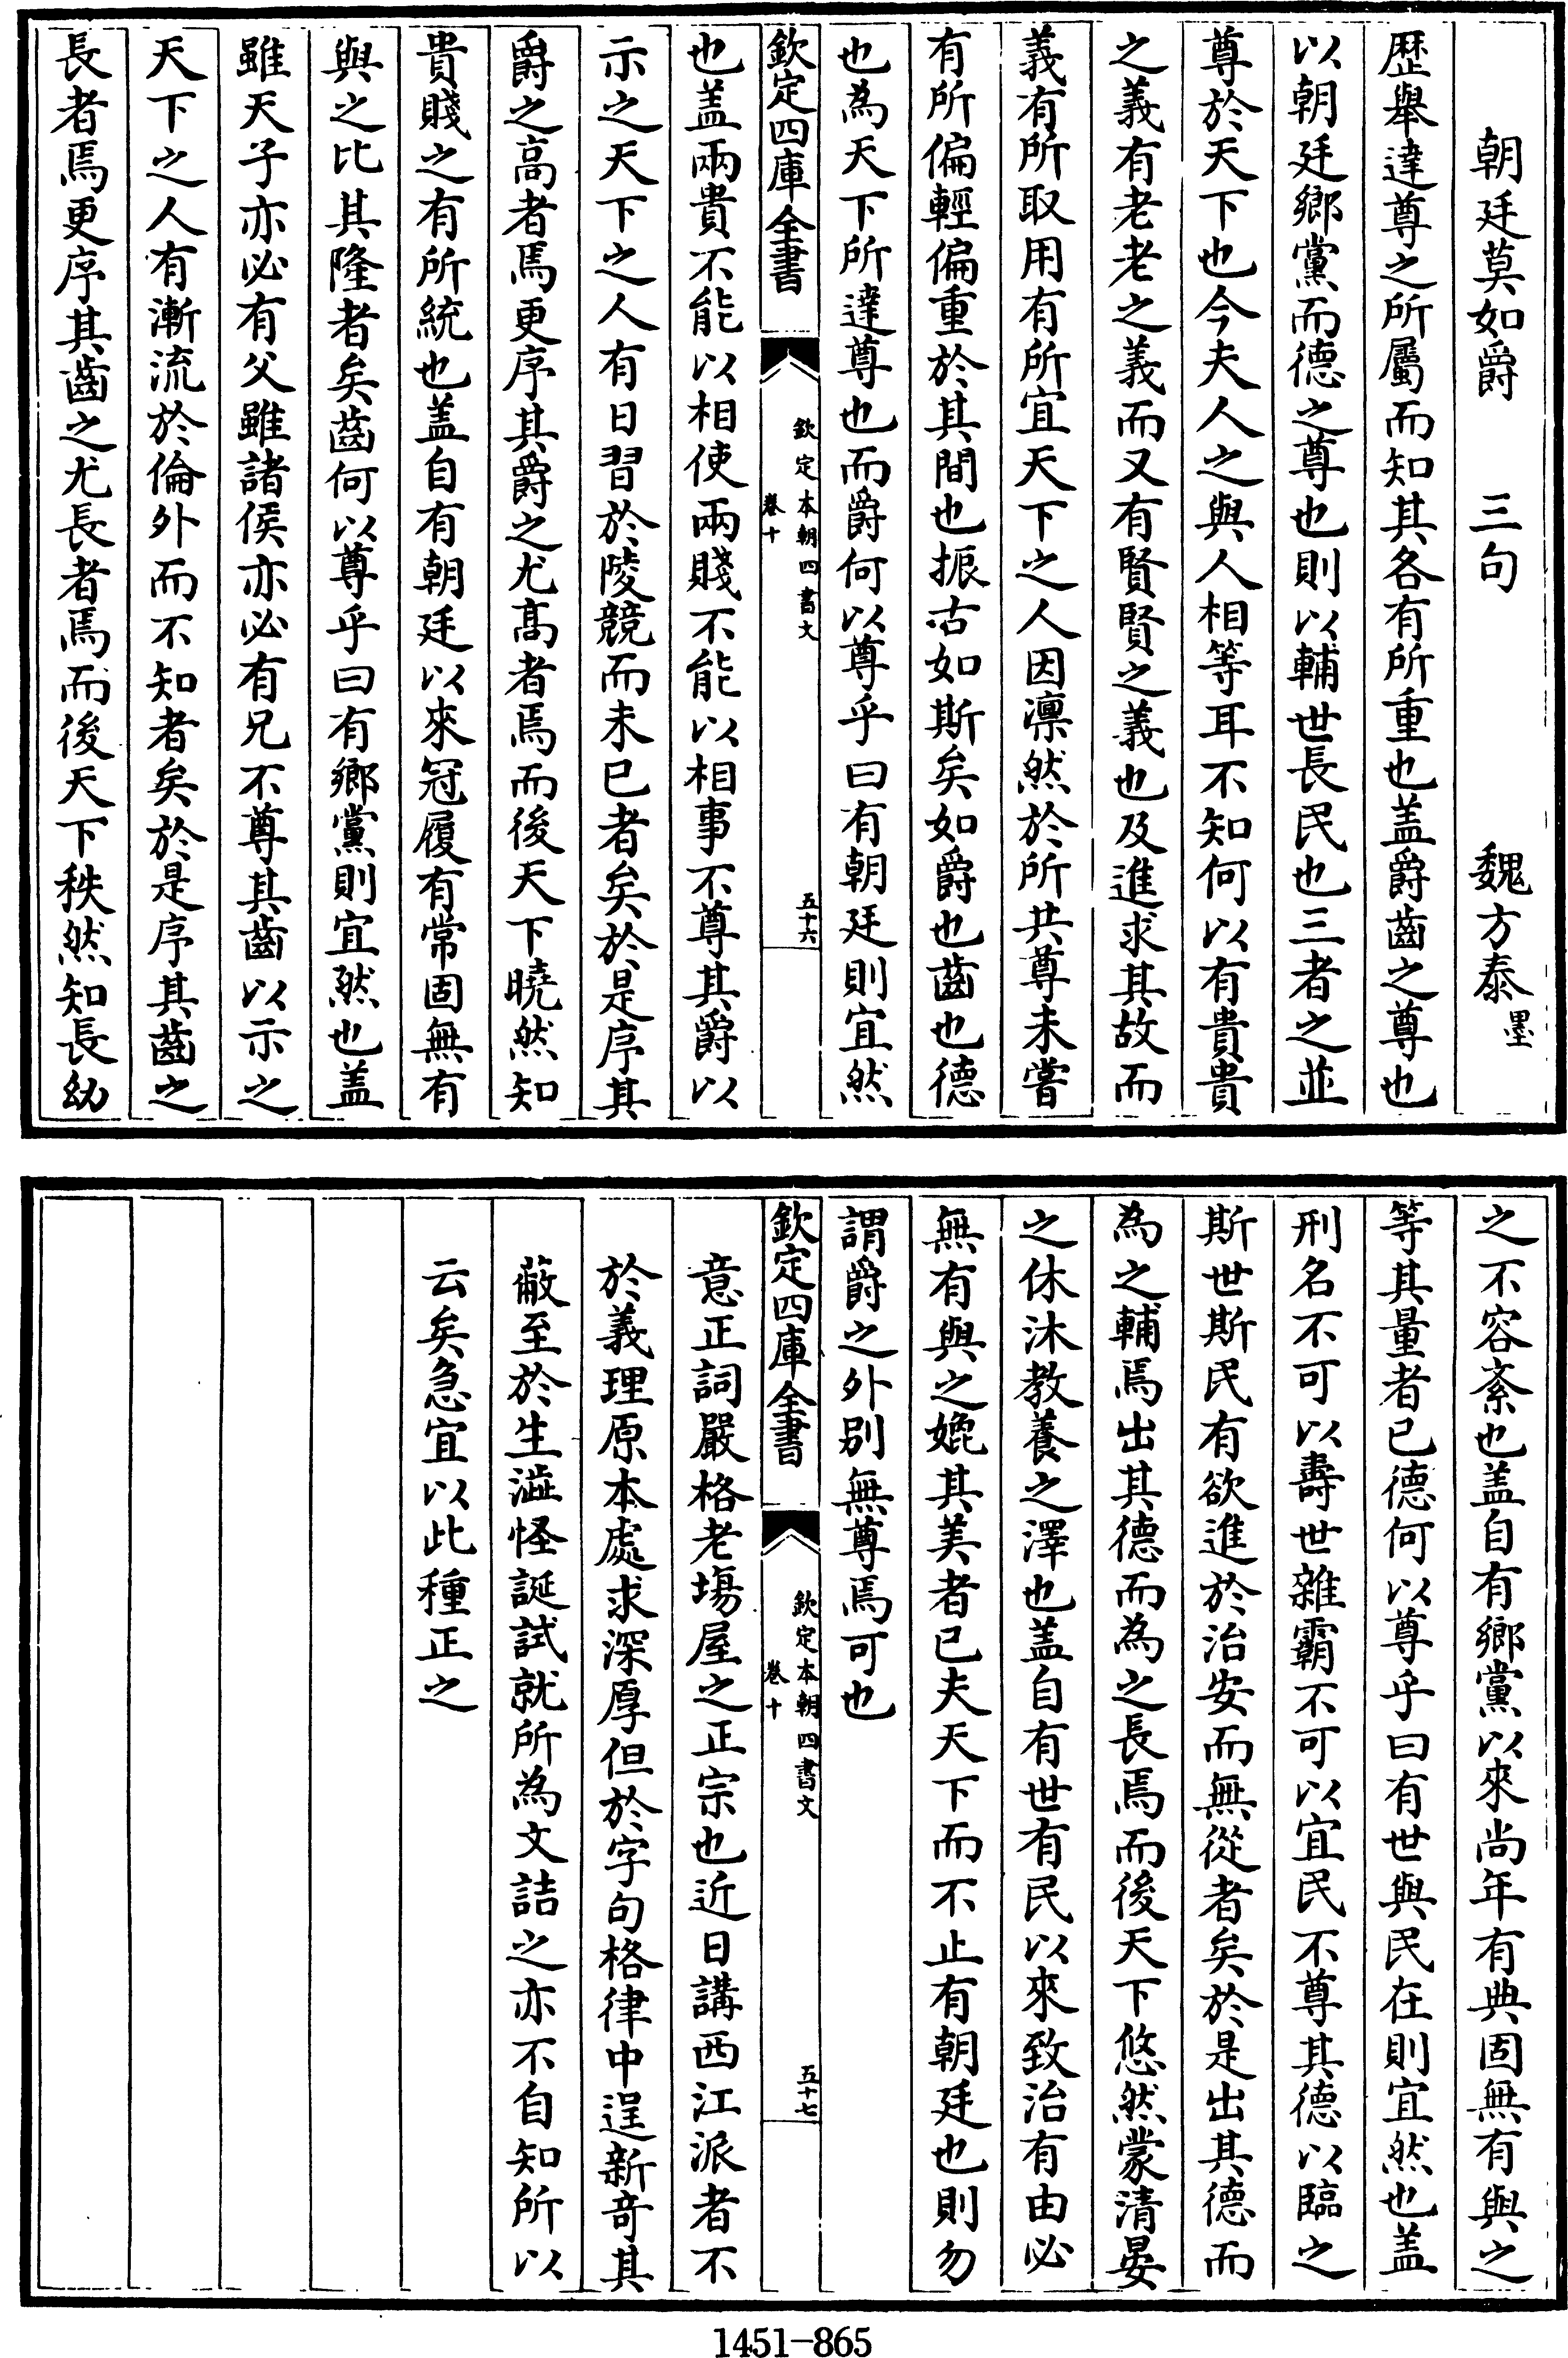 朝廷莫如爵　三句　魏方泰墨
歷舉達尊之所屬而知其各有所重也盖爵齒之尊也
以朝廷鄉黨而德之尊也則以輔世長民也三者之並
尊於天下也今夫人之與人相等耳不知何以有貴貴
之義有老老之義而又有賢賢之義也及進求其故而
義有所取用有所宜天下之人因凛然於所共尊未嘗
有所偏輕偏重於其間也振古如斯矣如爵也齒也德
也為天下所達尊也而爵何以尊乎曰有朝廷則宜然
欽定四庫全書
欽定本朝四書文
卷十
五十六
也盖兩貴不能以相使兩賤不能以相事不尊其爵以
示之天下之人有日習於陵競而未已者矣於是序其
爵之高者焉更序其爵之尤髙者焉而後天下曉然知
貴賤之有所統也盖自有朝廷以來冠履有常固無有
與之比其隆者矣齒何以尊乎曰有鄉黨則宜然也盖
雖天子亦必有父雖諸侯亦必有兄不尊其齒以示之
天下之人有漸流於倫外而不知者矣於是序其齒之
長者焉更序其齒之尤長者焉而後天下秩然知長幼
之不容紊也盖自有鄉黨以來尚年有典固無有與之
等其量者已德何以尊乎曰有世與民在則宜然也盖
刑名不可以壽世雜霸不可以宜民不尊其德以臨之
斯世斯民有欲進於治安而無從者矣於是出其德而
為之輔焉出其德而為之長焉而後天下悠然蒙清晏
之休沐教養之澤也盖自有世有民以來致治有由必
無有與之媲其美者已夫天下而不止有朝廷也則勿
謂爵之外别無尊焉可也
欽定四庫全書
欽定本朝四書文
卷十
五十七
意正詞嚴格老塲屋之正宗也近日講西江派者不
於義理原本處求深厚但於字句格律中逞新竒其
蔽至於生澁怪誕試就所為文詰之亦不自知所以
云矣急宜以此種正之
1451-865